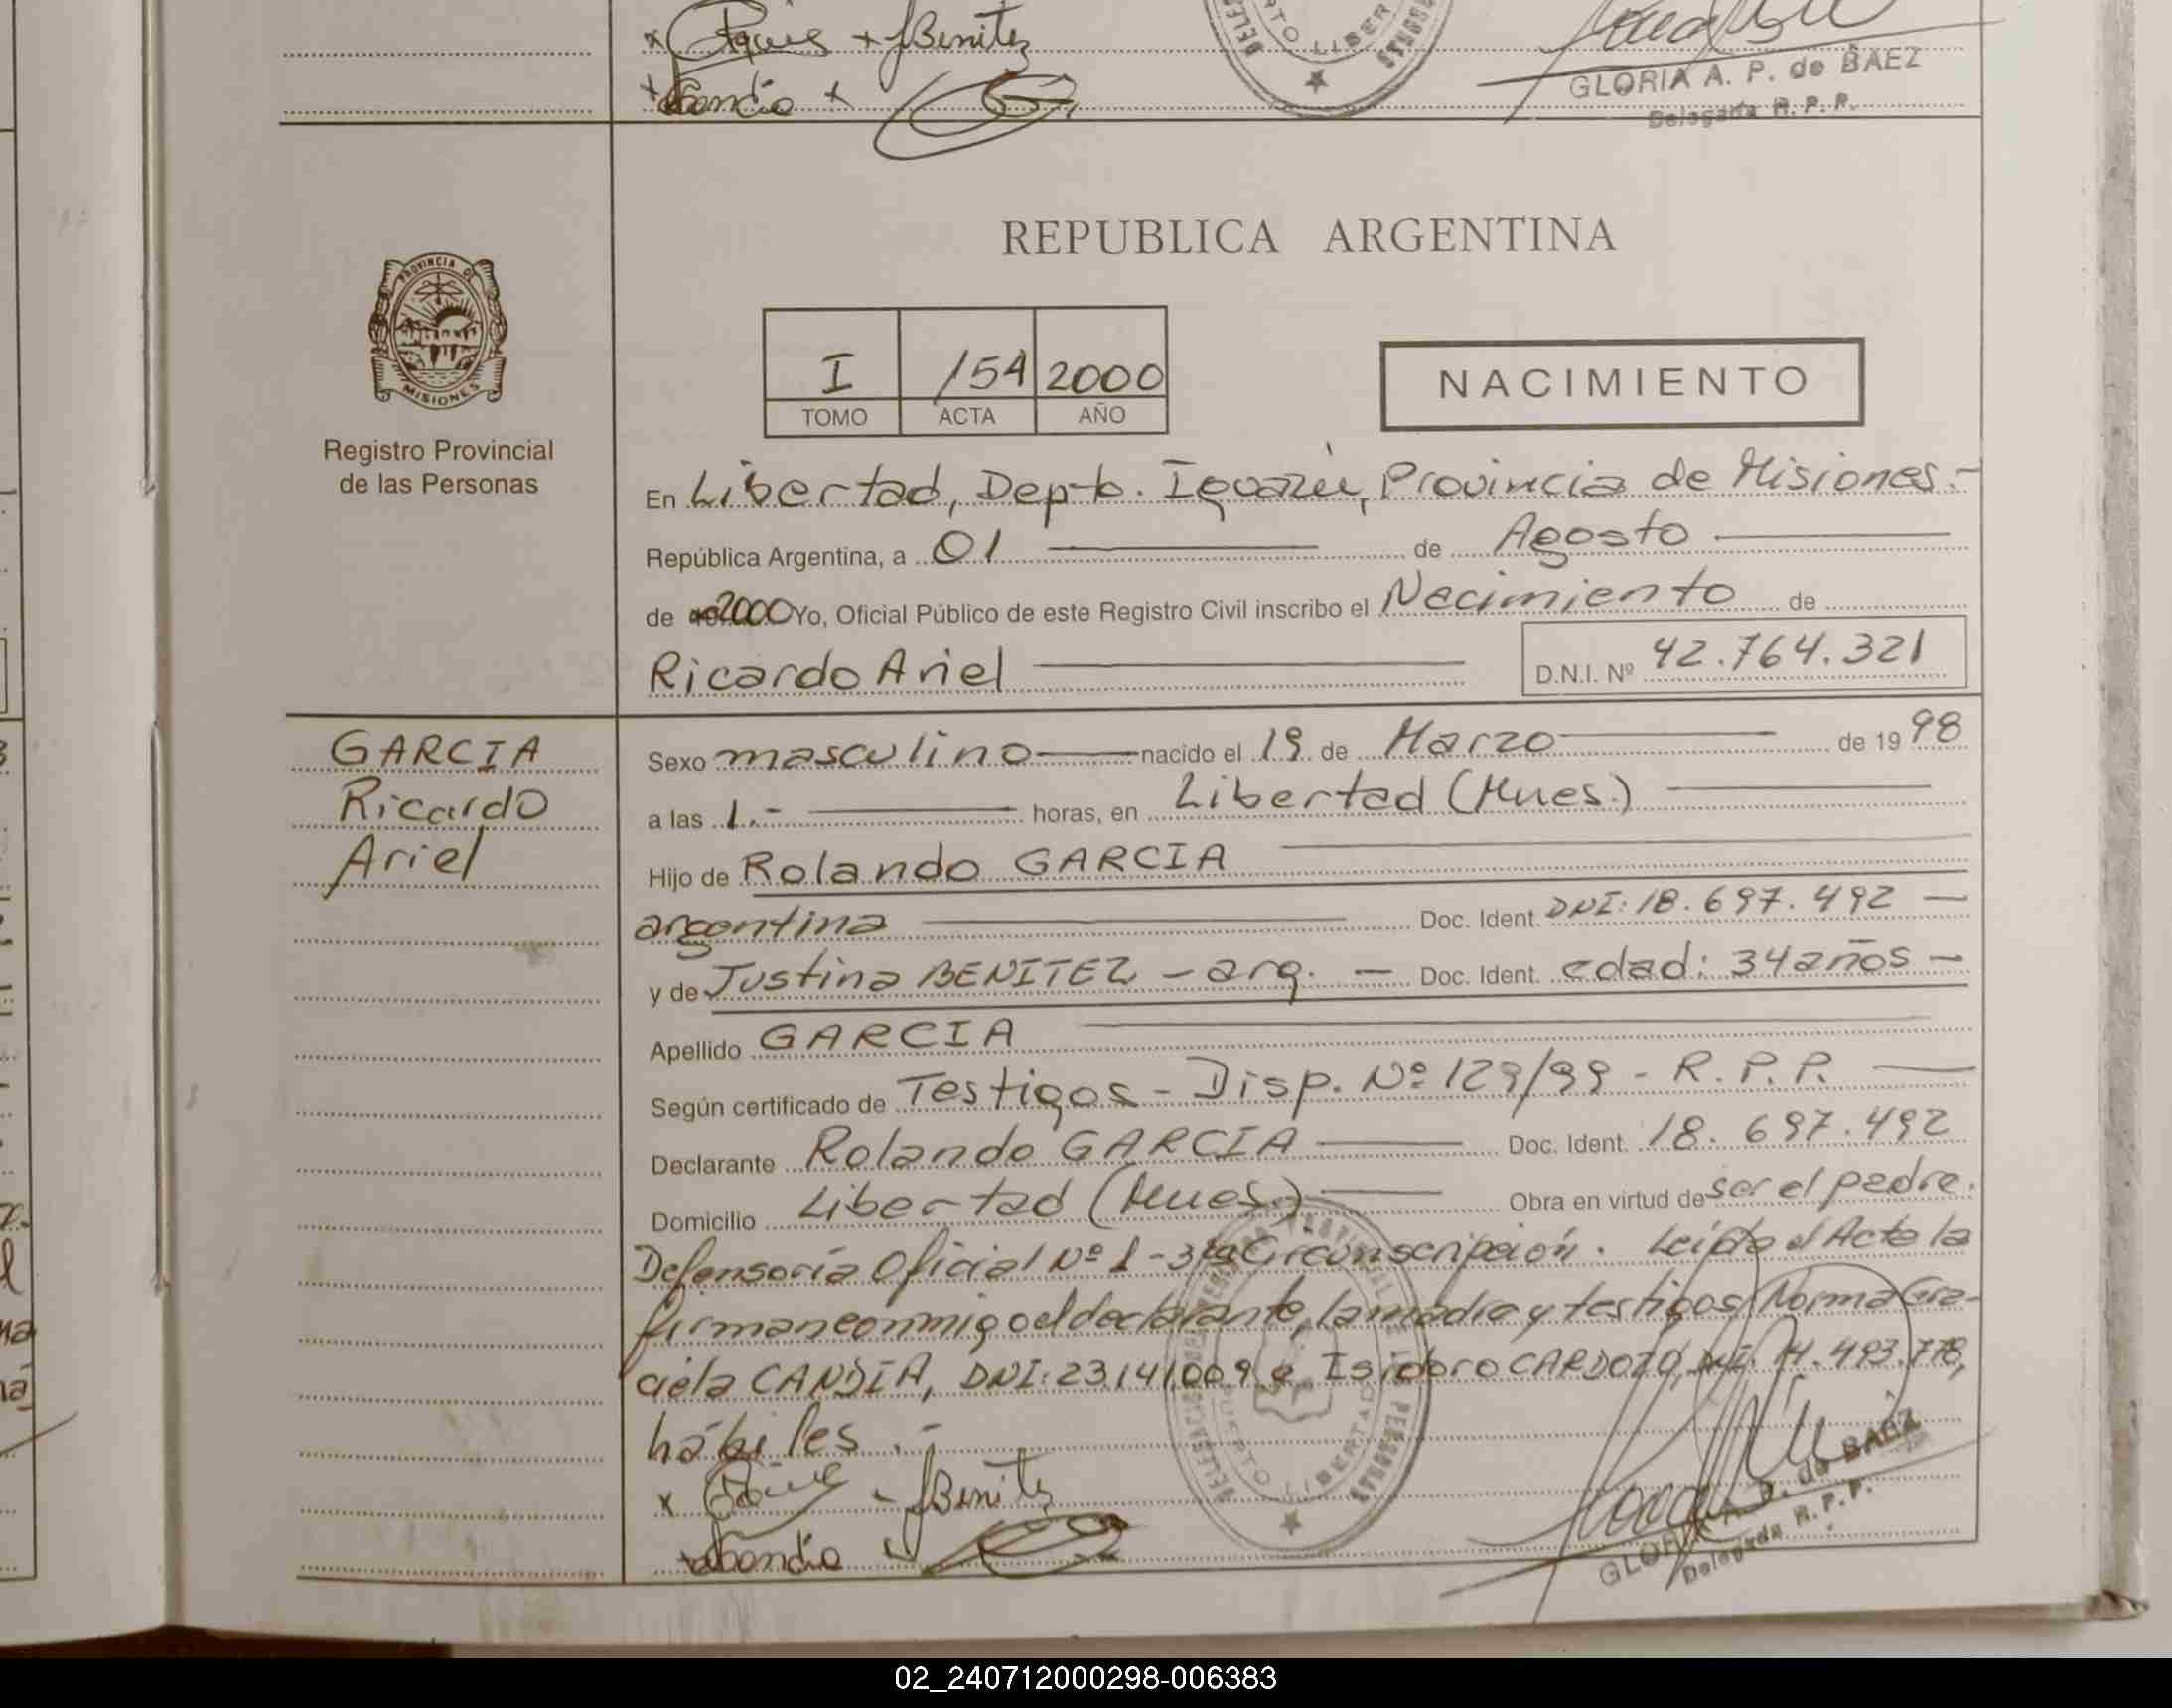 Benitez
PUERTO LIBERTAD
GLORIA A. P. de BAEZ
Delegada R. P. P.
REPUBLICA ARGENTINA
PROVINCIA DE
MISIONES
Registro Provincial
de las Personas
I 154 2000
TOMO ACTA AÑO
NACIMIENTO
En Libertad, Depto. Iguazú, Provincia de Misiones.-
República Argentina, a 01 de Agosto
de 2000 Yo, Oficial Público de este Registro Civil inscribo el Nacimiento de
Ricardo Ariel D.N.I. Nº 42.764.321
GARCIA
Ricardo
Ariel
Sexo masculino nacido el 19 de Marzo de 1998
a las 1.- horas, en Libertad (Mnes.)
Hijo de Rolando GARCIA
argentina Doc. Ident. DNI: 18.697.492 —
y de Justina BENITEZ - arg. — Doc. Ident. edad: 34 años —
Apellido GARCIA
Según certificado de Testigos - Disp. Nº 129/99 - R.P.P.
Declarante Rolando GARCIA Doc. Ident. 18.697.492
Domicilio Libertad (Mnes.) Obra en virtud de ser el padre.
Defensoría Oficial Nº 1 - 3ra Circunscripción. Leída el Acta la
firman conmigo el declarante, la madre y testigos Norma Gra-
ciela CANDIA, DNI: 23.141.009 e Isidoro CARDOZO, DNI. 14.493.778,
hábiles.-
Benitez
PUERTO LIBERTAD
GLORIA A. P. de BAEZ
Delegada R. P. P.
02_240712000298-006383